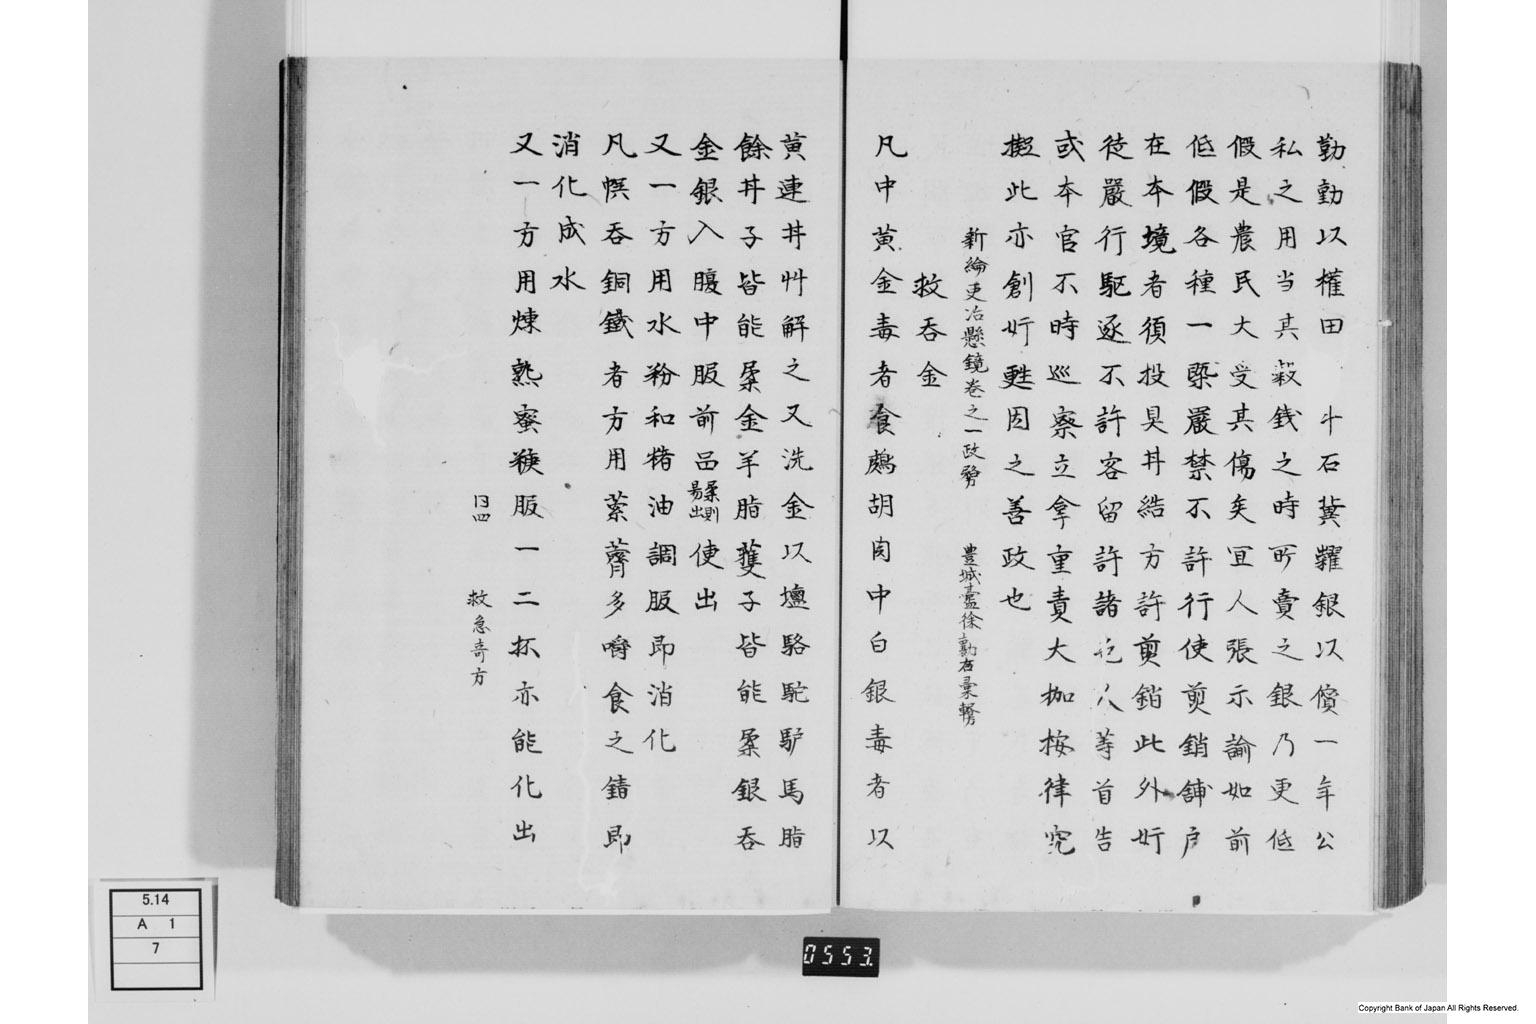 勤勤以權田 斗石糞糶銀以償一年公
私之用当其穀銭之時所賣之銀乃更低
假是農民大受其傷矣冝人張示諭如前
低假各種一槩嚴禁不許行使剪銷舗戸
在本境者須投具井結方許剪銷此外奸
徒嚴行駆逐不許容留許諸 人等首告
或本官不時巡察立拿重責大枷按律究
擬此亦創奸甦因之善政也
新綸吏治懸鏡巻之一政務 豊城 徐 
救呑金
凡中黄金毒者食鷓胡肉中白銀毒者以
黄連井艸解之又洗金以塩駱駝驴馬脂
餘井子皆能柔金羊脂 子皆能柔銀呑
金銀入腹中服前品柔則易出使出
又一方用水粉和猪油調服即消化
凡悞呑銅鐵者方用 薺多嚼食之錆即
消化成水
又一方用煉熟蜜 服一二杯亦能化出
同四 救急奇方
5.14
A 1
7
0553
Copyright Bank of Japan All Rights Reserved.